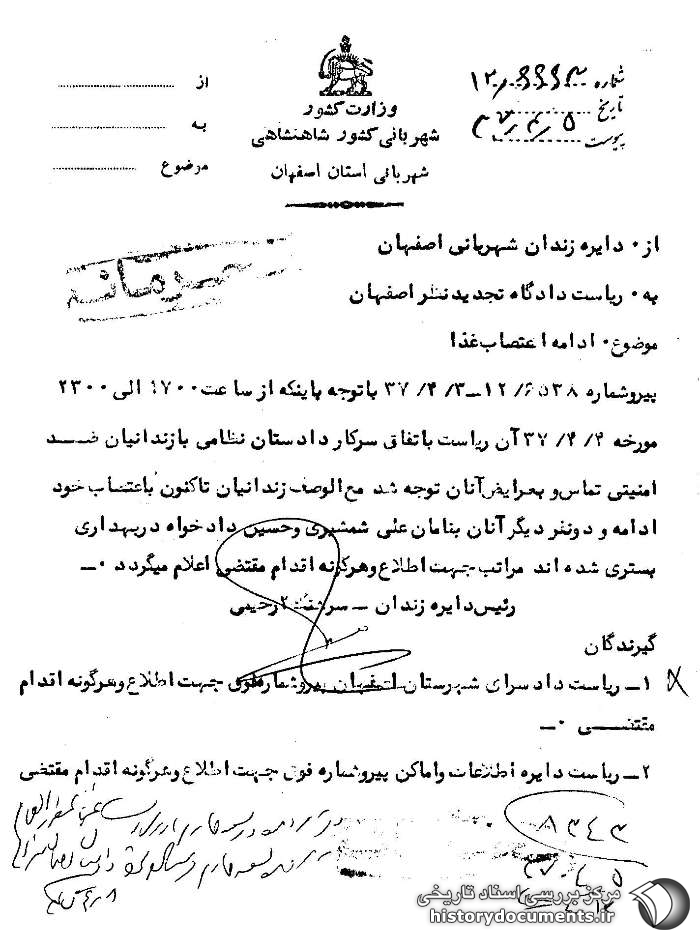 شماره
تاریخ ۳۷/۴/۵
پیوست
وزارت کشور
شهربانی کشور شاهنشاهی
شهربانی استان اصفهان
از
به
موضوع
محرمانه
از ۰ دایره زندان شهربانی اصفهان
به ۰ ریاست دادگاه تجدید نظر اصفهان
موضوع ۰ ادامه اعتصاب غذا
پیرو شماره ۶۵۳۸/ ۱۲ــ ۳۷/۴/۳ با توجه باینکه از ساعت ۱۷۰۰ الی ۲۳۰۰
مورخه ۳۷/۴/۴ آن ریاست باتفاق سرکار دادستان نظامی با زندانیان ضد
امنیتی تماس و بعرایض آنان توجه شد مع الوصف زندانیان تاکنون باعتصاب خود
ادامه و دونفر دیگر آنان بنامان علی شمشیری وحسین دادخواه دربهداری
بستری شده اند مراتب جهت اطلاع وهرگونه اقدام مقتضی اعلام میگردد ۰ــ
رئیس دایره زندان ــ سرهنگ ۲ رحیمی
گیرندگان
۱ــ ریاست دادسرای شهرستان اصفهان پیروشماره فوق جهت اطلاع وهرگونه اقدام
مقتضــی ۰ــ
۲ــ ریاست دایره اطلاعات واماکن پیروشماره فوق جهت اطلاع وهرگونه اقدام مقتضی
۸۳۴۳
مرکز بررسی اسناد تاریخی
historydocuments.ir